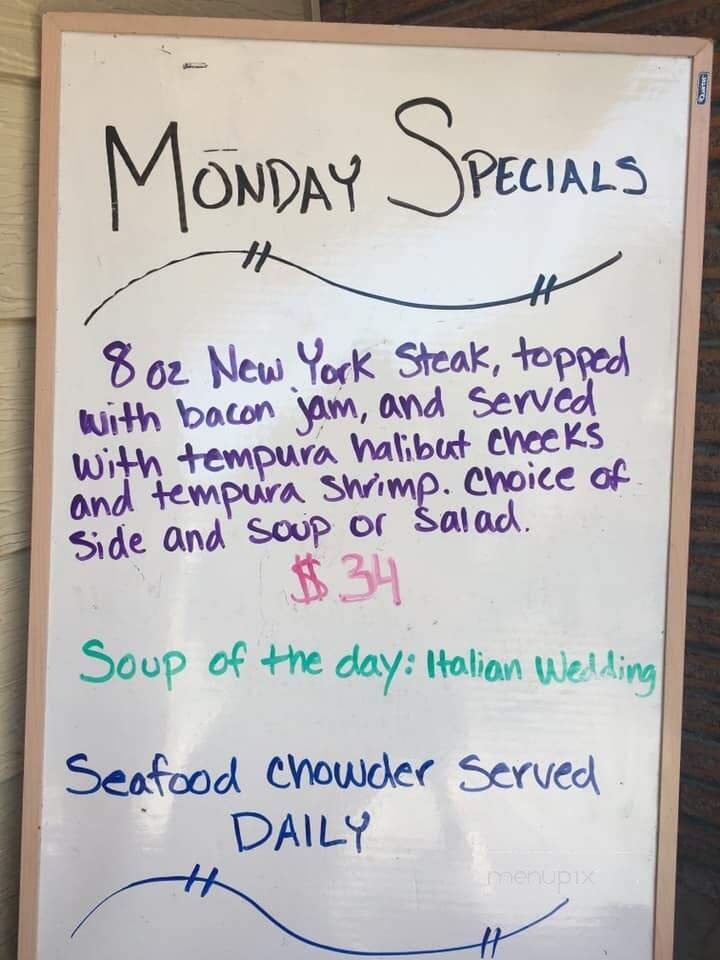 Monday Specials
8 oz New York Steak, topped
with bacon jam, and served
with tempura halibut cheeks
and tempura shrimp. Choice of
Side and Soup or Salad.
$34
Soup of the day: Italian Wedding
Seafood Chowder Served
DAILY
menupix